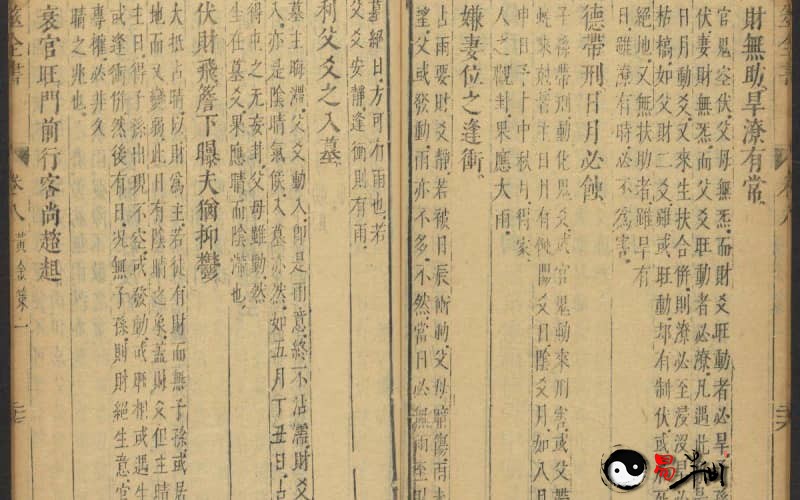 全書
財無助旱潦有常
官鬼空伏父母無炁而財爻旺動者必旱子
伏妻財無炁而父爻旺動者必潦凡遇此
日月動爻又來生扶合併則潦必至浸沒旱
枯槁如父財二爻雖或旺動却有制伏或
絕地又無扶助者雖旱有
日雖潦有時必不為害
德帶刑日月必蝕
子孫帶刑動化鬼爻或官鬼動來刑害或父帶
蛇來尅子主日月有蝕陽爻日陰爻月如八月
申日予于中秋占得家
人之觀卦果應大雨
嫌妻位之逢衝
占雨要財爻靜若被日辰衝動父母暗傷雨未
望父或發動雨亦不多不然當日必無雨至
墓絕日方可有雨也若
父爻安靜逢衝則有雨
利父爻之入墓
墓主晦滯父爻動入即是雨意終不沾濡財爻
入亦是陰晴氣候入墓亦然如五月丁丑日占
得屯之无妄卦父母雖動然
生在墓爻果應晴而陰滯也
伏財飛簷下曝夫猶抑鬱
大抵占晴以財為主若徒有財而無子孫或居
地而又變弱此日有陰晴之象蓋財爻但主晴
主日得子孫出現不空或發動或旺相或遇生
或逢衝併然後有日況無子孫則財絕生意官
專權必非久
晴之兆也
衰官旺門前行客尚趑趄
全書 卷八 黃金策一